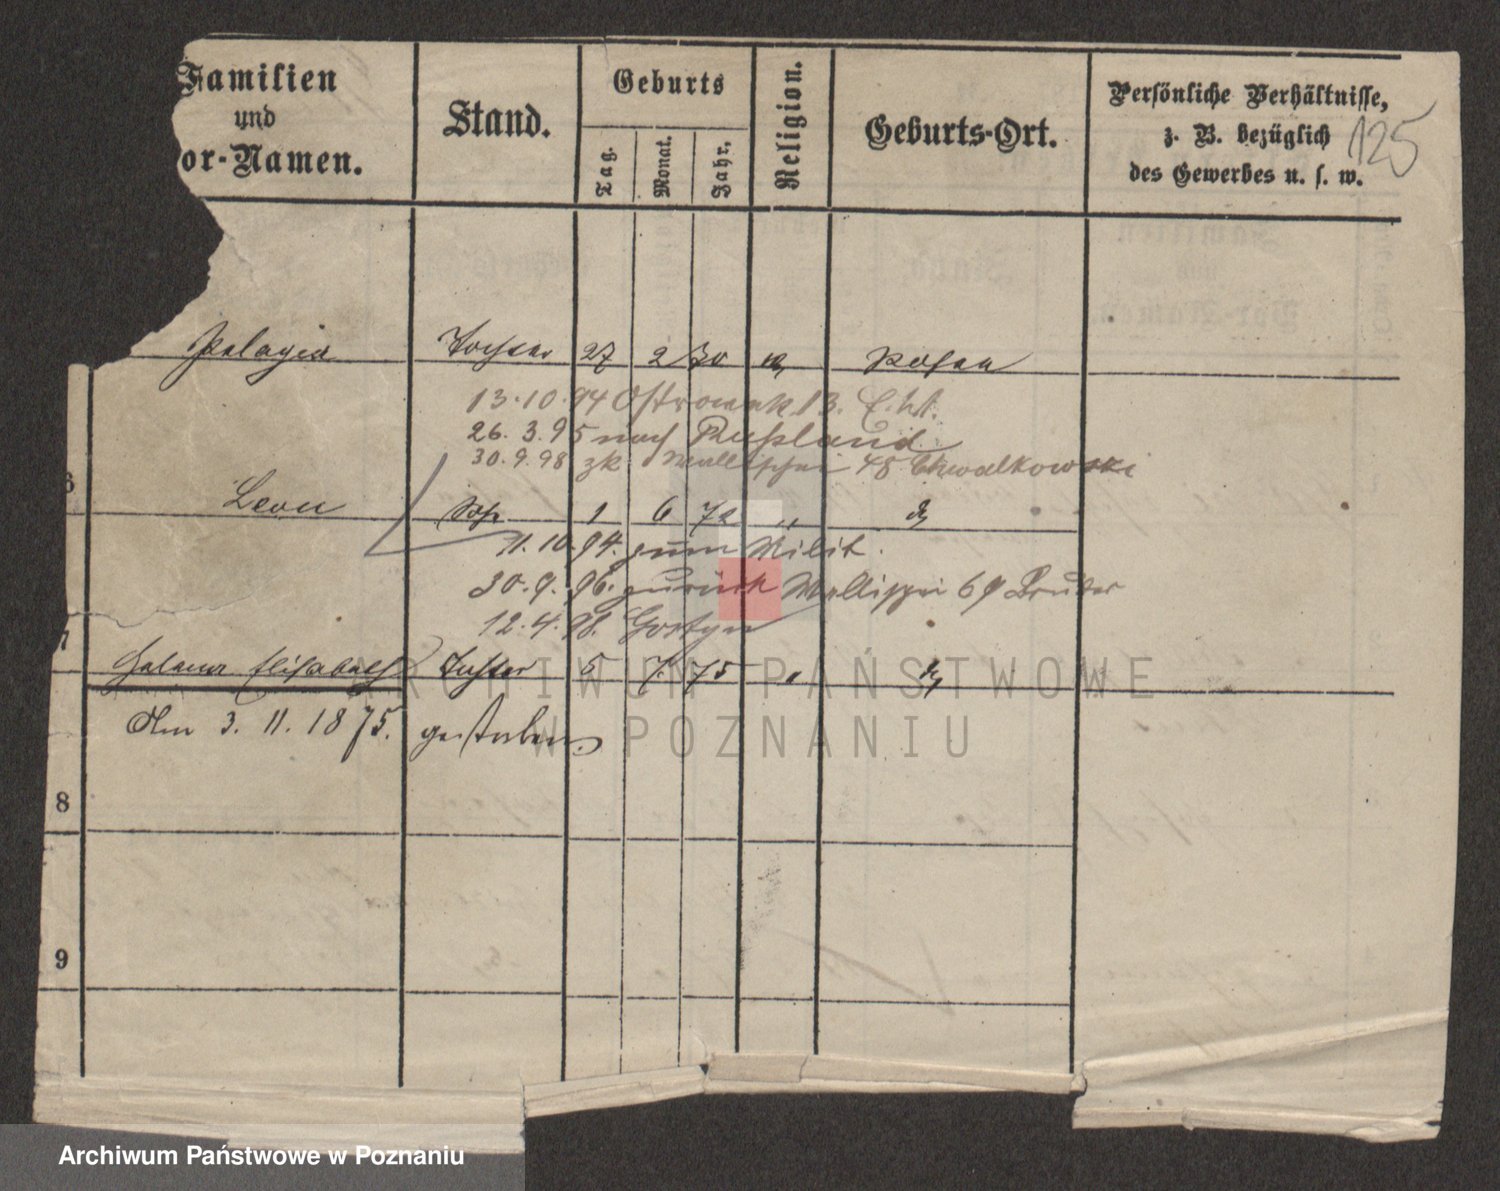 Familien
und
or-Namen.
Stand.
Geburts
Tag.
Monat.
Jahr.
Religion.
Geburts-Ort.
Persönliche Verhältnisse,
z. B. bezüglich
des Gewerbes u. s. w.
125
Pelagia Tochter 27 2 70 k. Posen
13.10.94 Ostrowek 13.
26.3.95 nach Rußland
30.9.98 zk. Wallischei 48 Chwalkowski
6 Leon Sohn 1 6 72 "
11.10.94. zum Milit.
30.9.96. zurück Wallischei 69 Bruder
12.4.98. Gostyn
7 Helena Elisabeth Tochter 5 7. 75 "
Am 3. 11. 1875. gestorben.
8
9
ARCHIWUM PAŃSTWOWE
W POZNANIU
Archiwum Państwowe w Poznaniu